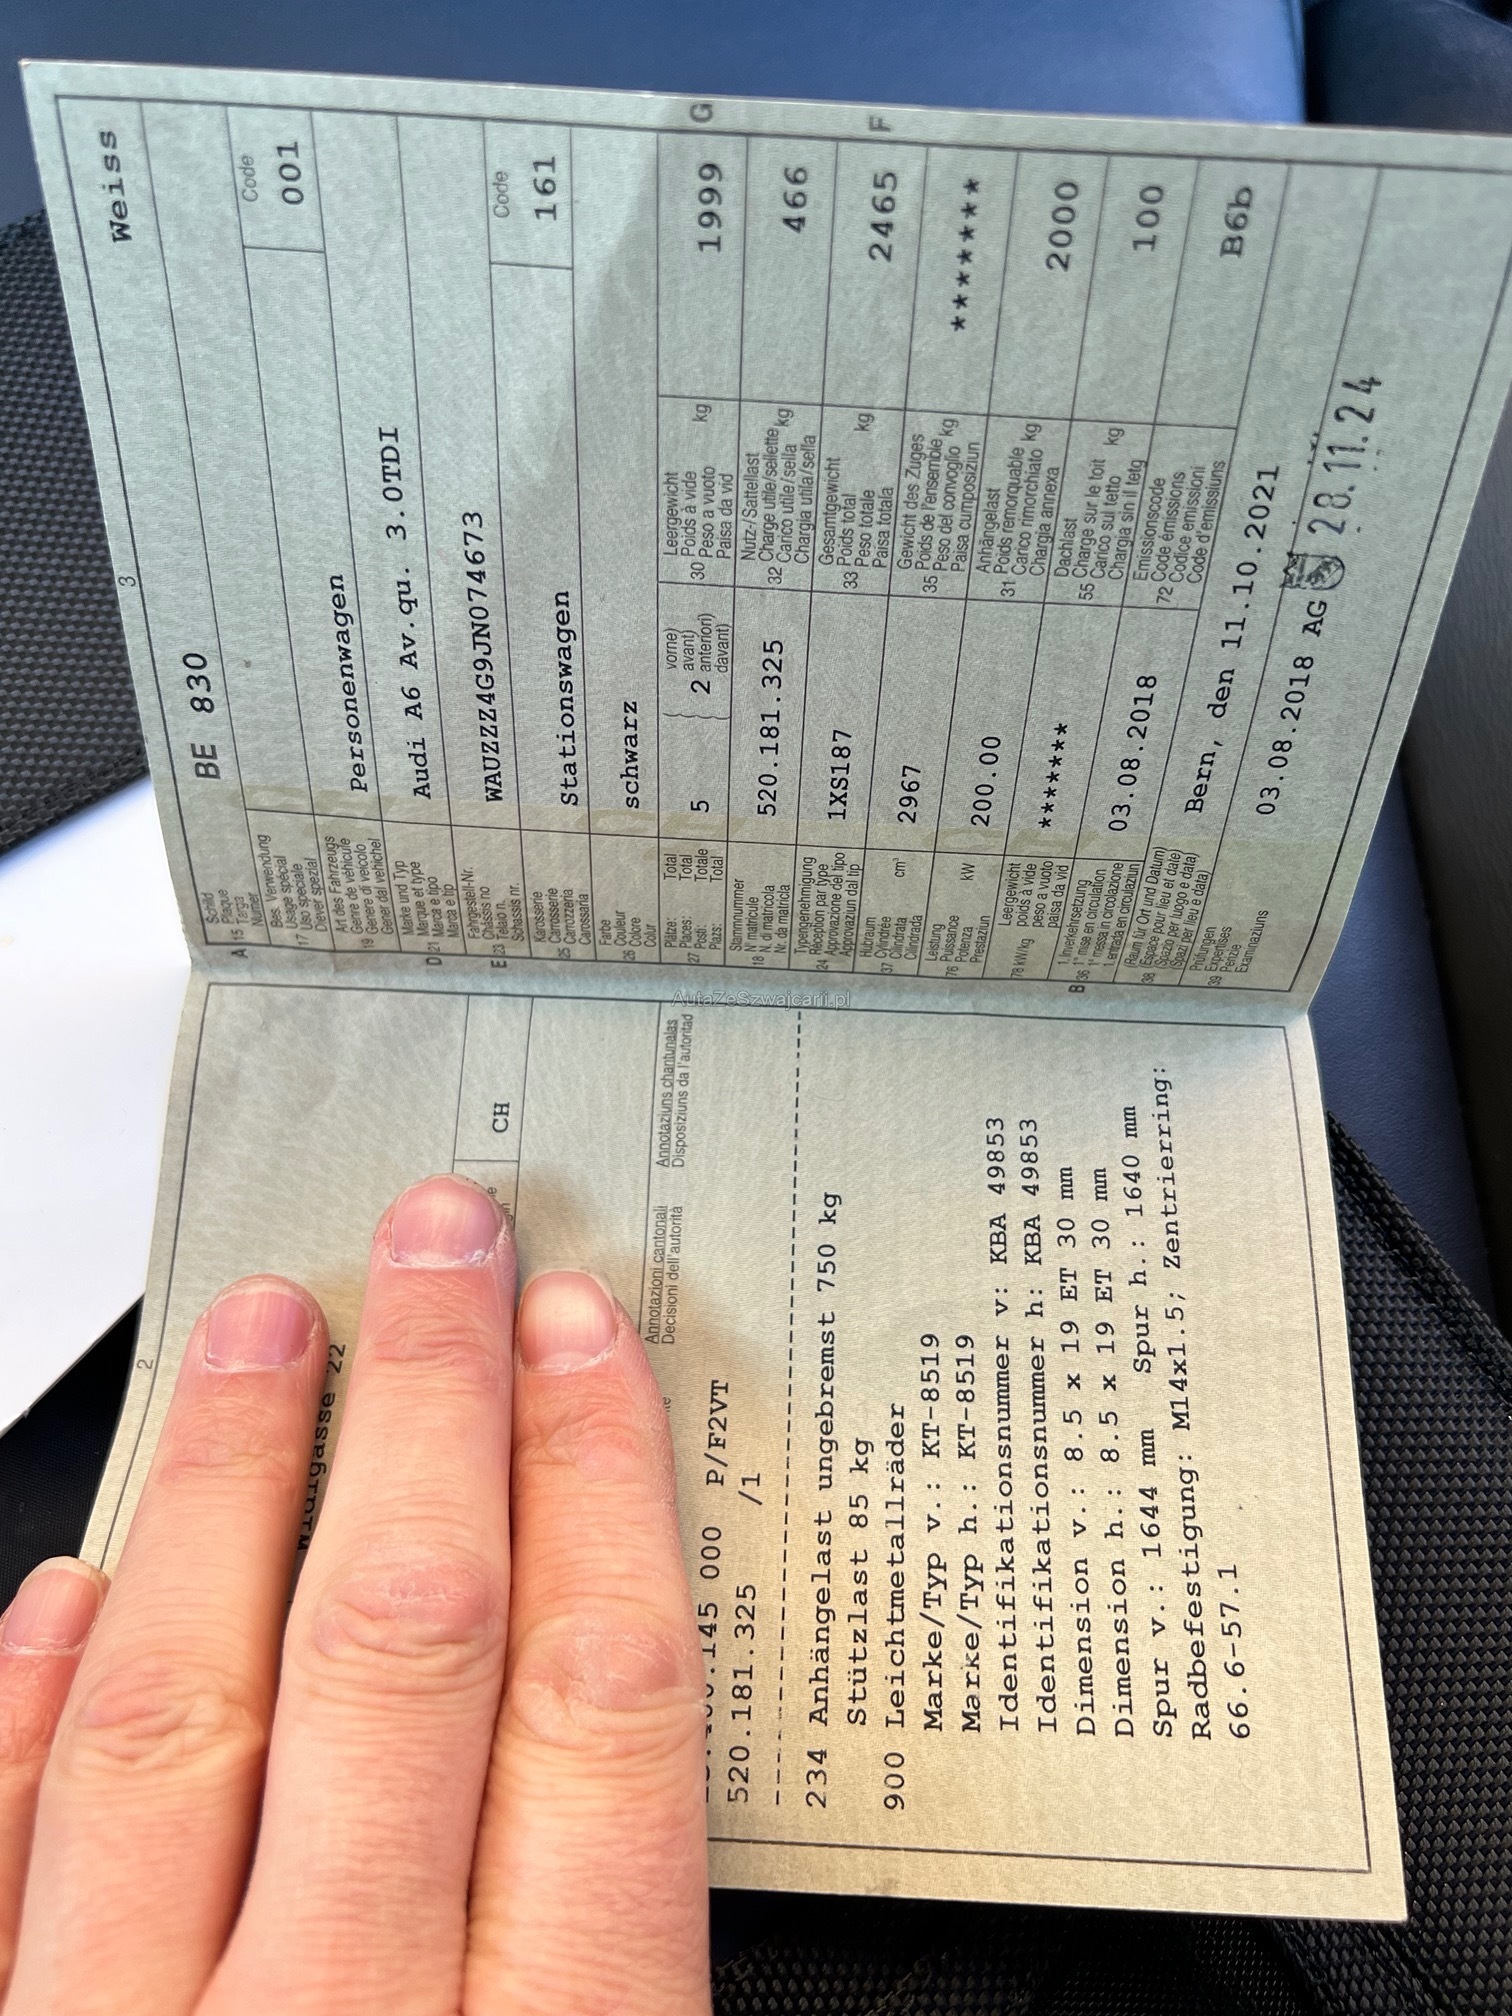 2
Widigasse 22
CH
Annotazioni cantonali Annotaziuns chantunalas
Decisioni dell'autorità Disposiziuns da l'autoritad
145 000 P/F2VT
520.181.325 /1
234 Anhängelast ungebremst 750 kg
Stützlast 85 kg
900 Leichtmetallräder
Marke/Typ v.: KT-8519
Marke/Typ h.: KT-8519
Identifikationsnummer v: KBA 49853
Identifikationsnummer h: KBA 49853
Dimension v.: 8.5 x 19 ET 30 mm
Dimension h.: 8.5 x 19 ET 30 mm
Spur v.: 1644 mm Spur h.: 1640 mm
Radbefestigung: M14x1.5; Zentrierring:
66.6-57.1
AutaZeSzwajcarii.pl
3
Weiss
A 15 Schild
Plaque
Targa
Numer
BE 830
17 Bes. Verwendung
Usage spécial
Uso speciale
Diever spezial
Code
001
19 Art des Fahrzeugs
Genre de véhicule
Genere di veicolo
Gener dal vehichel
Personenwagen
D 21 Marke und Typ
Marque et type
Marca e tipo
Marca e tip
Audi A6 Av.qu. 3.0TDI
E 23 Fahrgestell-Nr.
Châssis no
Telaio n.
Schassis nr.
WAUZZZ4G9JN074673
25 Karosserie
Carrosserie
Carrozzeria
Carossaria
Stationswagen
Code
161
26 Farbe
Couleur
Colore
Colur
schwarz
27 Plätze: Total
Places: Total
Posti: Totale
Plazs: Total
5
2
vorne)
avant)
anteriori)
davant)
30 Leergewicht
Poids à vide
Peso a vuoto
Paisa da vid
kg
1999
G
18 Stammnummer
N° matricule
N. di matricola
Nr. da matricla
520.181.325
32 Nutz-/Sattellast
Charge utile/sellette
Carico utile/sella
Chargia utila/sella
kg
466
24 Typengenehmigung
Réception par type
Approvazione del tipo
Approvaziun dal tip
1XS187
33 Gesamtgewicht
Poids total
Peso totale
Paisa totala
kg
2465
F
37 Hubraum
Cylindrée
Cilindrata
Cilindrada
cm³
2967
35 Gewicht des Zuges
Poids de l'ensemble
Peso del convoglio
Paisa cumposiziun
kg
*******
76 Leistung
Puissance
Potenza
Prestaziun
kW
200.00
31 Anhängelast
Poids remorquable
Carico rimorchiato
Chargia annexa
kg
2000
78 kW/kg
Leergewicht
poids à vide
peso a vuoto
paisa da vid
*******
55 Dachlast
Charge sur le toit
Carico sul tetto
Chargia sin il tetg
kg
100
B 36 1. Inverkehrsetzung
1re mise en circulation
1a messa in circolazione
1. entrada en circulaziun
03.08.2018
72 Emissionscode
Code émissions
Codice emissioni
Code d'emissiuns
B6b
38 (Raum für Ort und Datum)
(Espace pour lieu et date)
(Spazio per luogo e data)
(Spazi per lieu e data)
Bern, den 11.10.2021
39 Prüfungen
Expertises
Perizie
Examinaziuns
03.08.2018 AG 28.11.24